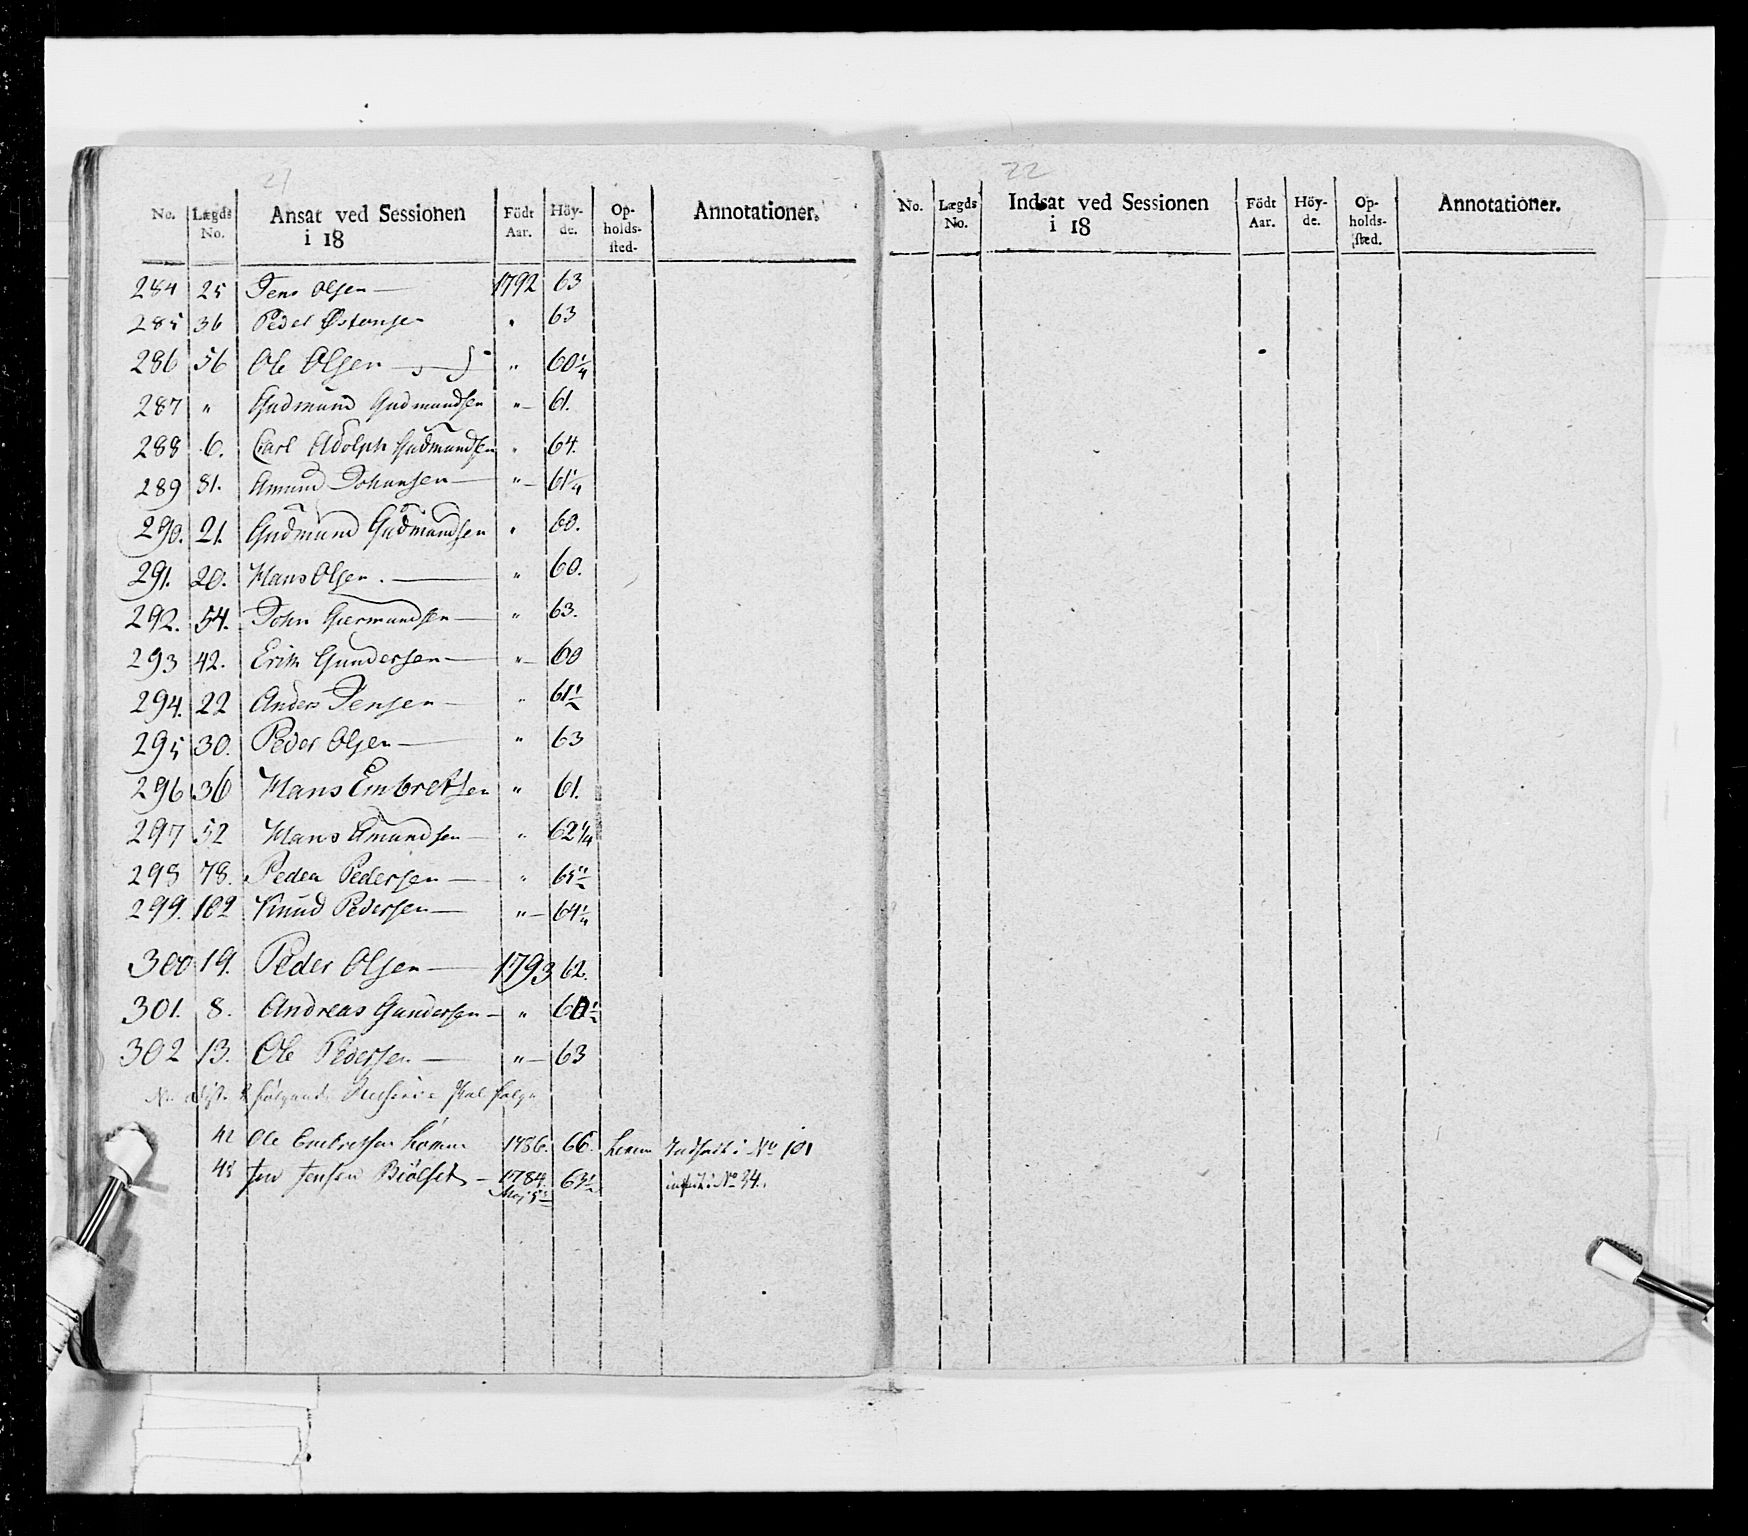 21
No. | Lægds No. | Ansat ved Sessionen i 18 | Födt Aar. | Höy-de. | Op-holds-sted- | Annotationer.
284 | 25 | Jens Olsen — | 1792 | 63
285 | 36 | Peder Østensen | " | 63
286 | 56 | Ole Olsen — | " | 60 1/4
287 | " | Gudmund Gudmundsen | " — | 61.
288 | 6. | Carl Adolph Gudmundsen | " | 64.
289 | 81. | Amund Johansen — | " — | 61 1/4
290. | 21. | Gudmund Gudmundsen | " | 60.
291. | 20. | Hans Olsen. — | " | 60.
292. | 54. | John Giermundsen — | " | 63.
293 | 42. | Erik Gundersen — | " — | 60
294. | 22 | Anders Jensen — | " | 61 1/2
295 | 30. | Peder Olsen — | " | 63
296 | 36 | Hans Embretsen | " | 61.
297 | 52 | Hans Amundsen — | " | 62 1/4
298 | 78. | Peder Pedersen — | "
299. | 102 | Knud Pedersen — | " — | 64 1/4
300 | 19. | Peder Olsen — | 1793 | 62.
301. | 8. | Andreas Gundersen — | " | 60 1/2
302 | 13. | Ole Pedersen — | " — | 63
følgende
42 | Ole Embretsen | 1786. | 66. | Indført i No 101
Jensen — | 1784. | 63 1/2 | No 34.
22
No. | Lægds No. | Indsat ved Sessionen i 18 | Födt Aar. | Höy-de. | Op-holds-sted. | Annotationer.